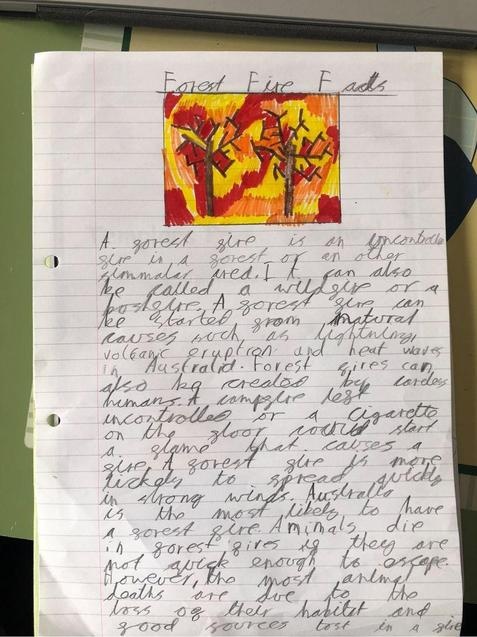 Forest Fire Facts
A forest fire is an uncontrolled
fire in a forest or an other
simmalar ared. It can also
be called a wildfire or a
boshfire. A forest fire can
be started from natural
causes such as lightning,
volcanic eruption and heat waves
in Australia. Forest fires can
also be created by careless
humans. A campfire left
incontrolled or a cigarette
on the floor could start
a flame that causes a
fire. A forest fire is more
likely to spread quickly
in strong winds. Australia
is the most likely to have
a forest fire. Aminals die
in forest fires if they are
not quick enough to escape.
However, the most animal
deaths are due to the
loss of their habitat and
food sources lost in a fire